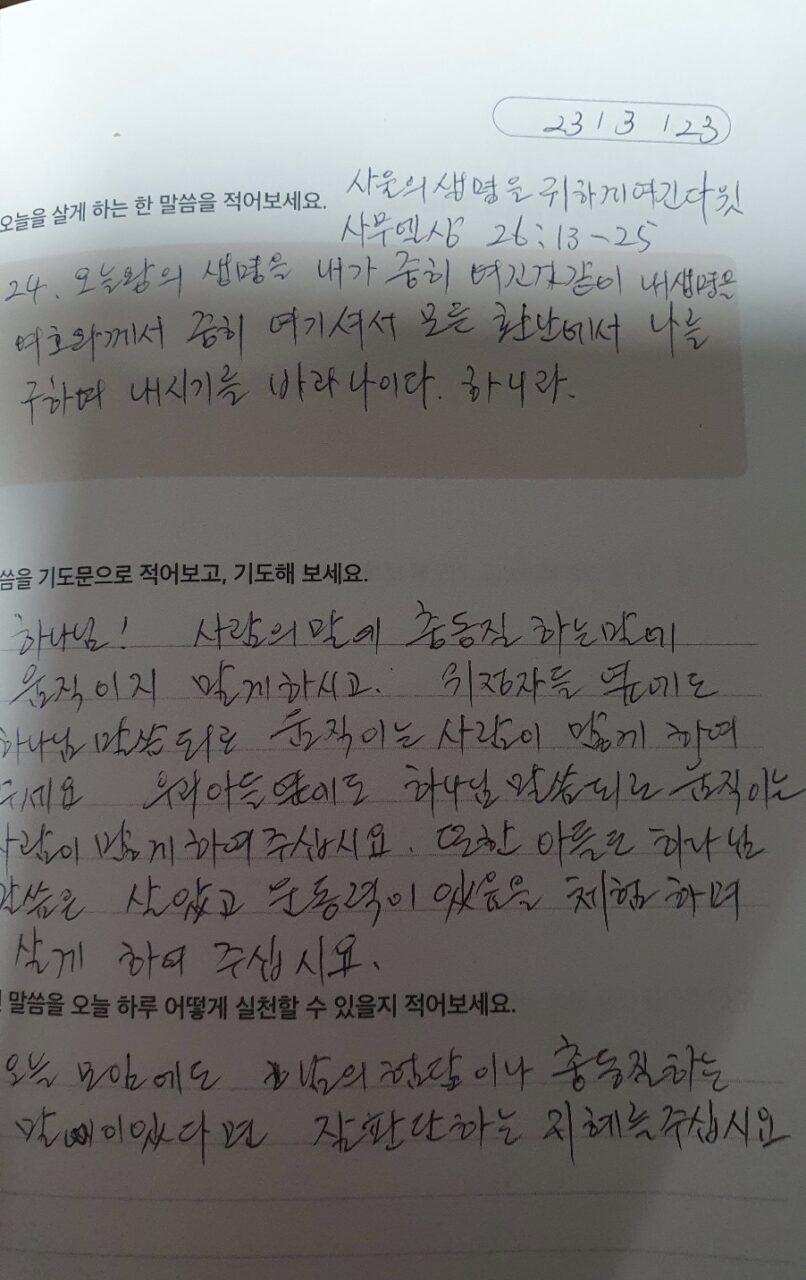 23 / 3 / 23
오늘을 살게 하는 한 말씀을 적어보세요. 사울의 생명을 귀하게 여긴 다윗
사무엘상 26:13-25
24. 오늘 왕의 생명을 내가 중히 여긴것 같이 내 생명을
여호와께서 중히 여기셔서 모든 환난에서 나를
구하여 내시기를 바라나이다. 하니라.
씀을 기도문으로 적어보고, 기도해 보세요.
하나님! 사람의 말에 충동질 하는 말에
움직이지 말게 하시고. 위정자들 옆에도
하나님 말씀 되로 움직이는 사람이 많게 하여
주세요 우리 아들 옆에도 하나님 말씀 되로 움직이는
사람이 많게 하여 주십시요. 또한 아들로 하나님
말씀은 살았고 운동력이 있음을 체험하며
살게 하여 주십시요.
말씀을 오늘 하루 어떻게 실천할 수 있을지 적어보세요.
오늘 모임에도 험담이나 충동질하는
말 이있다면 잘 판단하는 지혜를 주십시요